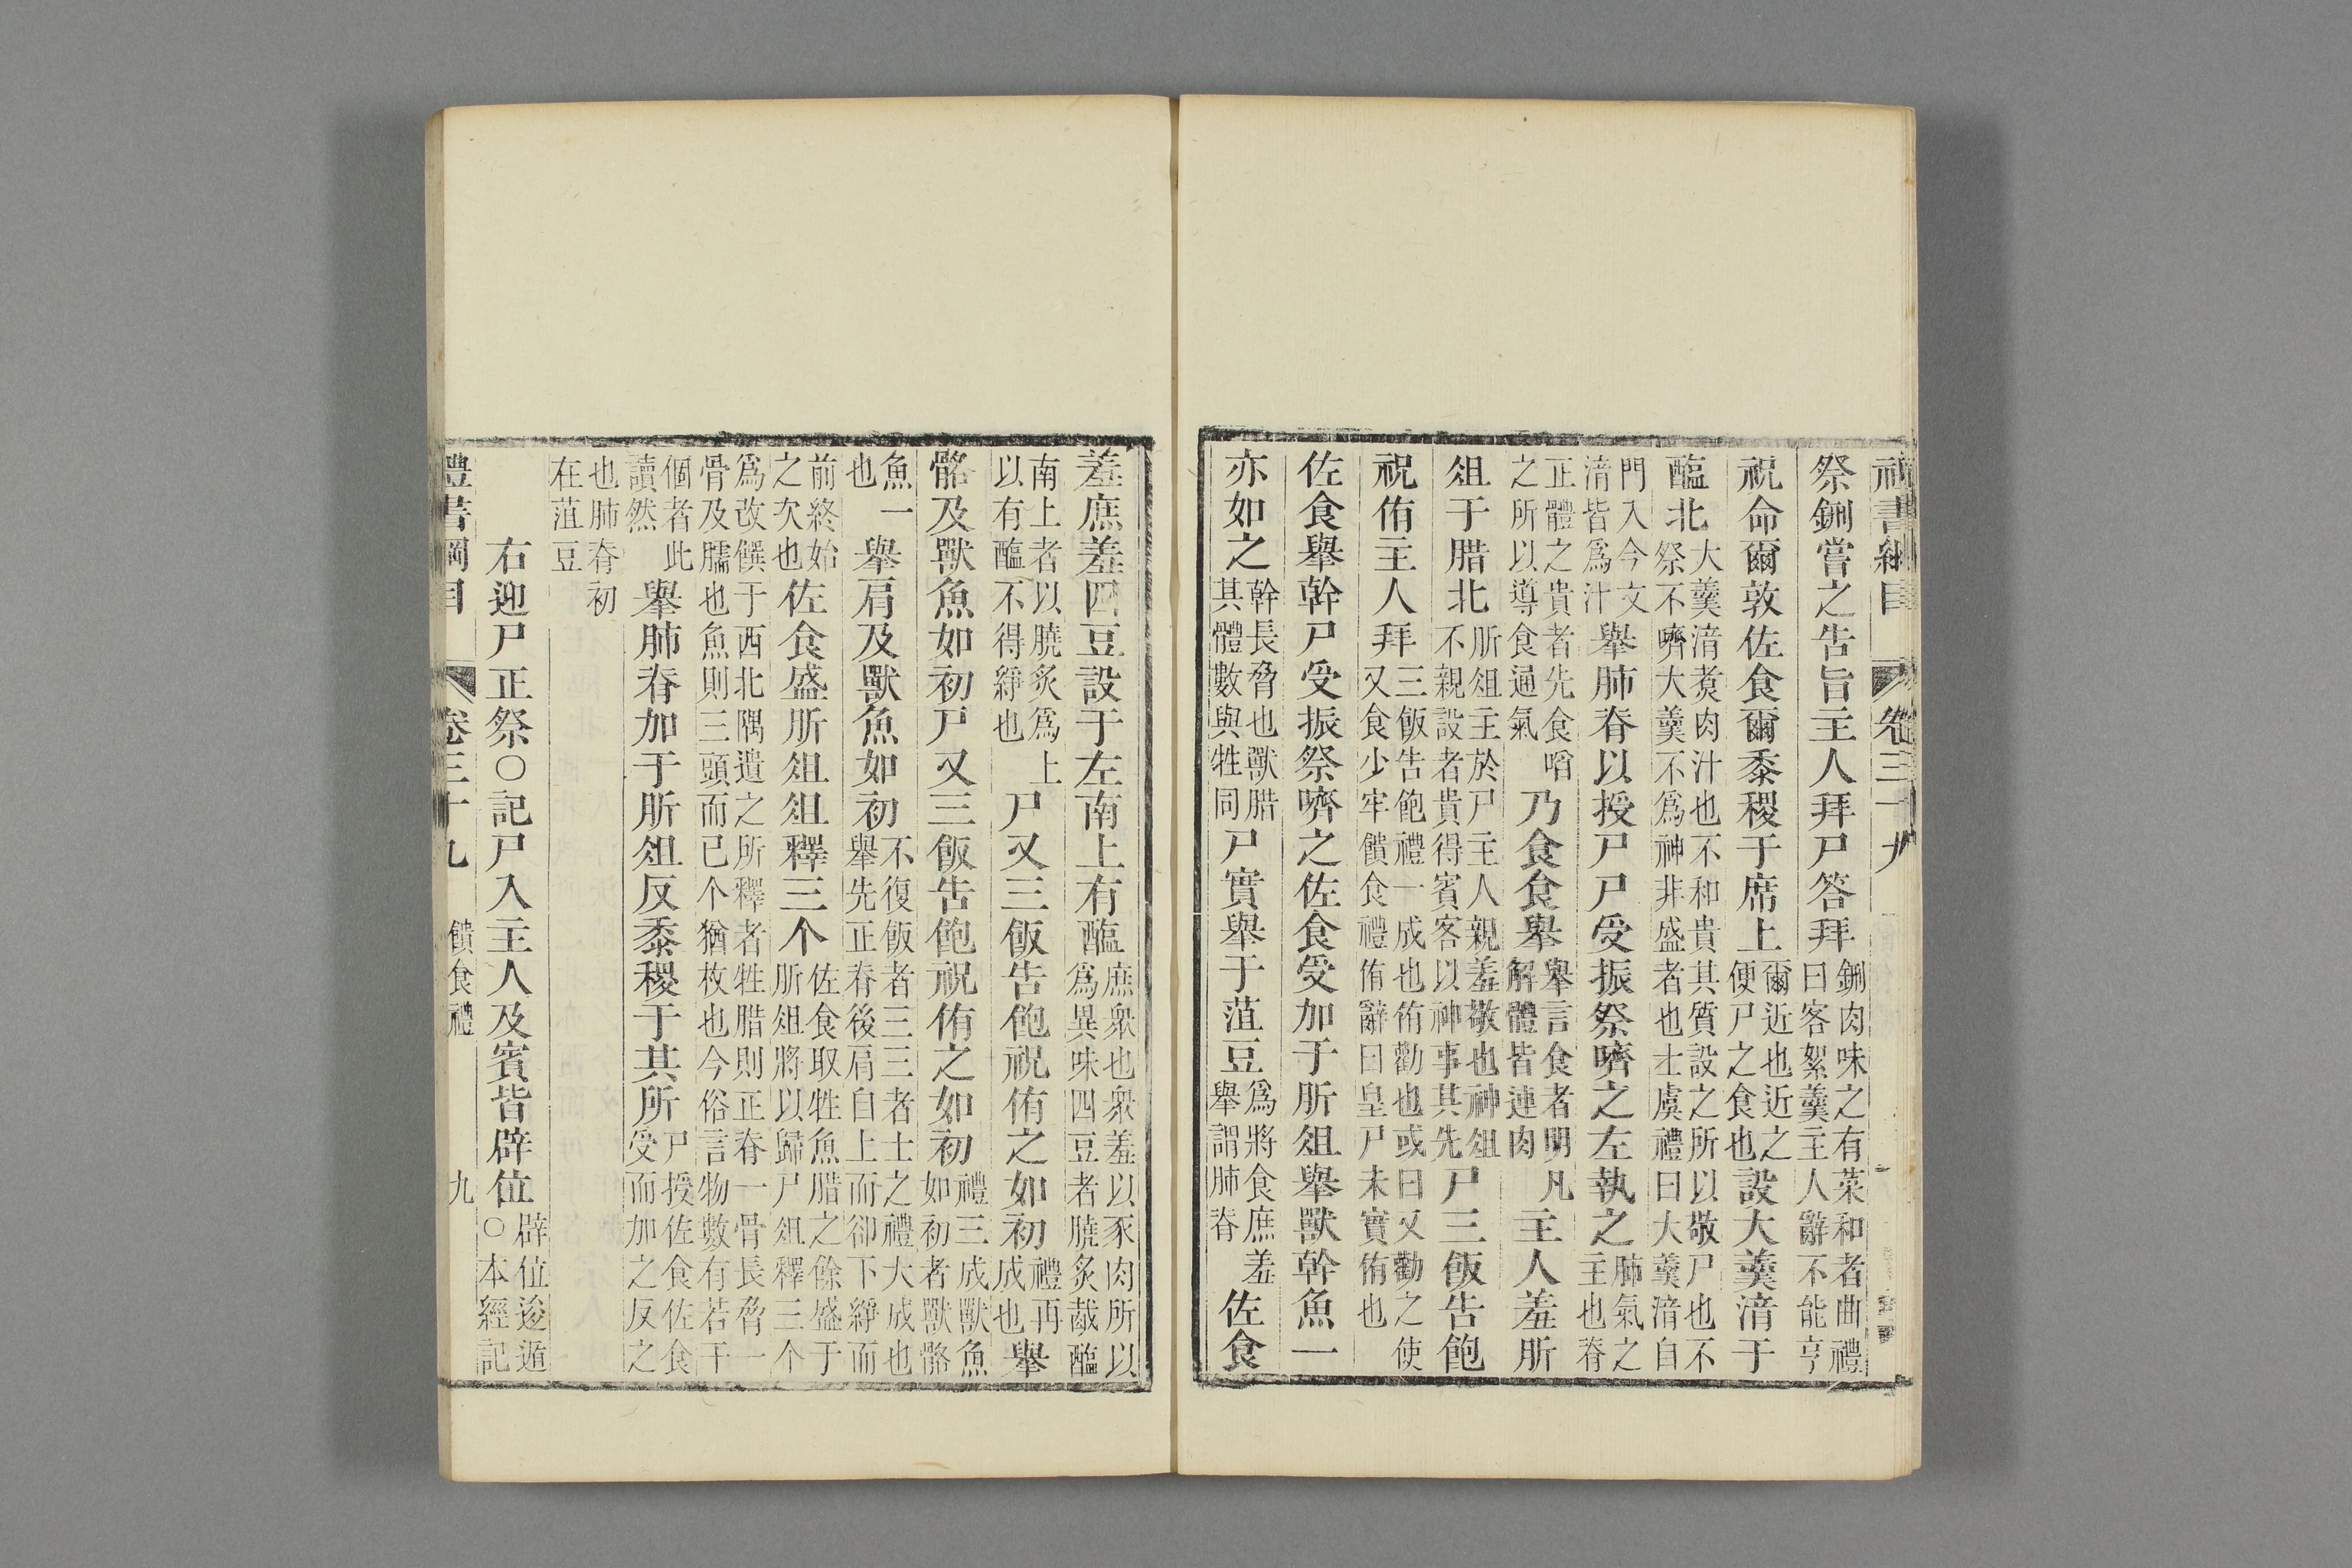 禮書綱目 卷三十九
祭鉶嘗之告旨主人拜尸答拜
鉶肉味之有菜和者曲禮
曰客絮羹主人辭不能亨
祝命爾敦佐食爾黍稷于席上
爾近也近之
便尸之食也
設大羹湆于
醢北
大羹湆煑肉汁也不和貴其質設之所以敬尸也不
祭不嚌大羹不爲神非盛者也士虞禮曰大羹湆自
門入今文
湆皆爲汁
舉肺脊以授尸尸受振祭嚌之左執之
肺氣之
主也脊
正體之貴者先食啗
之所以導食通氣
乃食食舉
舉言食者明凡
解體皆連肉
主人羞肵
俎于腊北
肵俎主於尸主人親羞敬也神俎
不親設者貴得賓客以神事其先
尸三飯告飽
祝侑主人拜
三飯告飽禮一成也侑勸也或曰又勸之使
又食少牢饋食禮侑辭曰皇尸未實侑也
佐食舉幹尸受振祭嚌之佐食受加于肵俎舉獸幹魚一
亦如之
幹長脅也獸腊
其體數與牲同
尸實舉于菹豆
爲將食庶羞
舉謂肺脊
佐食
羞庶羞四豆設于左南上有醢
庶衆也衆羞以豕肉所以
爲異味四豆者膮炙胾醢
南上者以膮炙爲上
以有醢不得綪也
尸又三飯告飽祝侑之如初
禮再
成也
舉
骼及獸魚如初尸又三飯告飽祝侑之如初
禮三成獸魚
如初者獸骼
魚一
也
舉肩及獸魚如初
不復飯者三三者士之禮大成也
舉先正脊後肩自上而卻下綪而
前終始
之次也
佐食盛肵俎俎釋三个
佐食取牲魚腊之餘盛于
肵俎將以歸尸俎釋三个
爲改饌于西北隅遺之所釋者牲腊則正脊一骨長脅一
骨及臑也魚則三頭而已个猶枚也今俗言物數有若干
個者此
讀然
舉肺脊加于肵俎反黍稷于其所
尸授佐食佐食
受而加之反之
也肺脊初
在菹豆
右迎尸正祭○記尸入主人及賓皆辟位
辟位逡遁
○本經記
禮書綱目 卷三十九 饋食禮 九